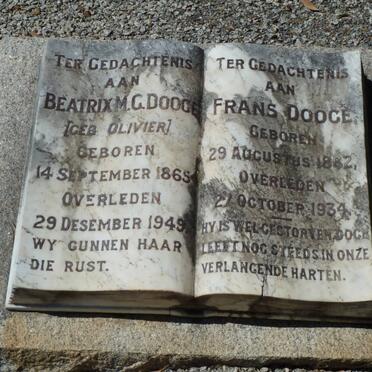 TER GEDACHTENIS
AAN
BEATRIX M.C. DOOGE
[GEB OLIVIER]
GEBOREN
14 SEPTEMBER 1865
OVERLEDEN
29 DESEMBER 1949.
WY GUNNEN HAAR
DIE RUST.
TER GEDACHTENIS
AAN
FRANS DOOGE,
GEBOREN
29 AUGUSTUS 1862,
OVERLEDEN
27 OCTOBER 1934.
HY IS WEL GESTORVEN, DOCH
LEEFT NOG STEEDS IN ONZE
VERLANGENDE HARTEN.